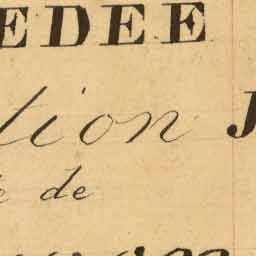 EDEE
tion J
e de